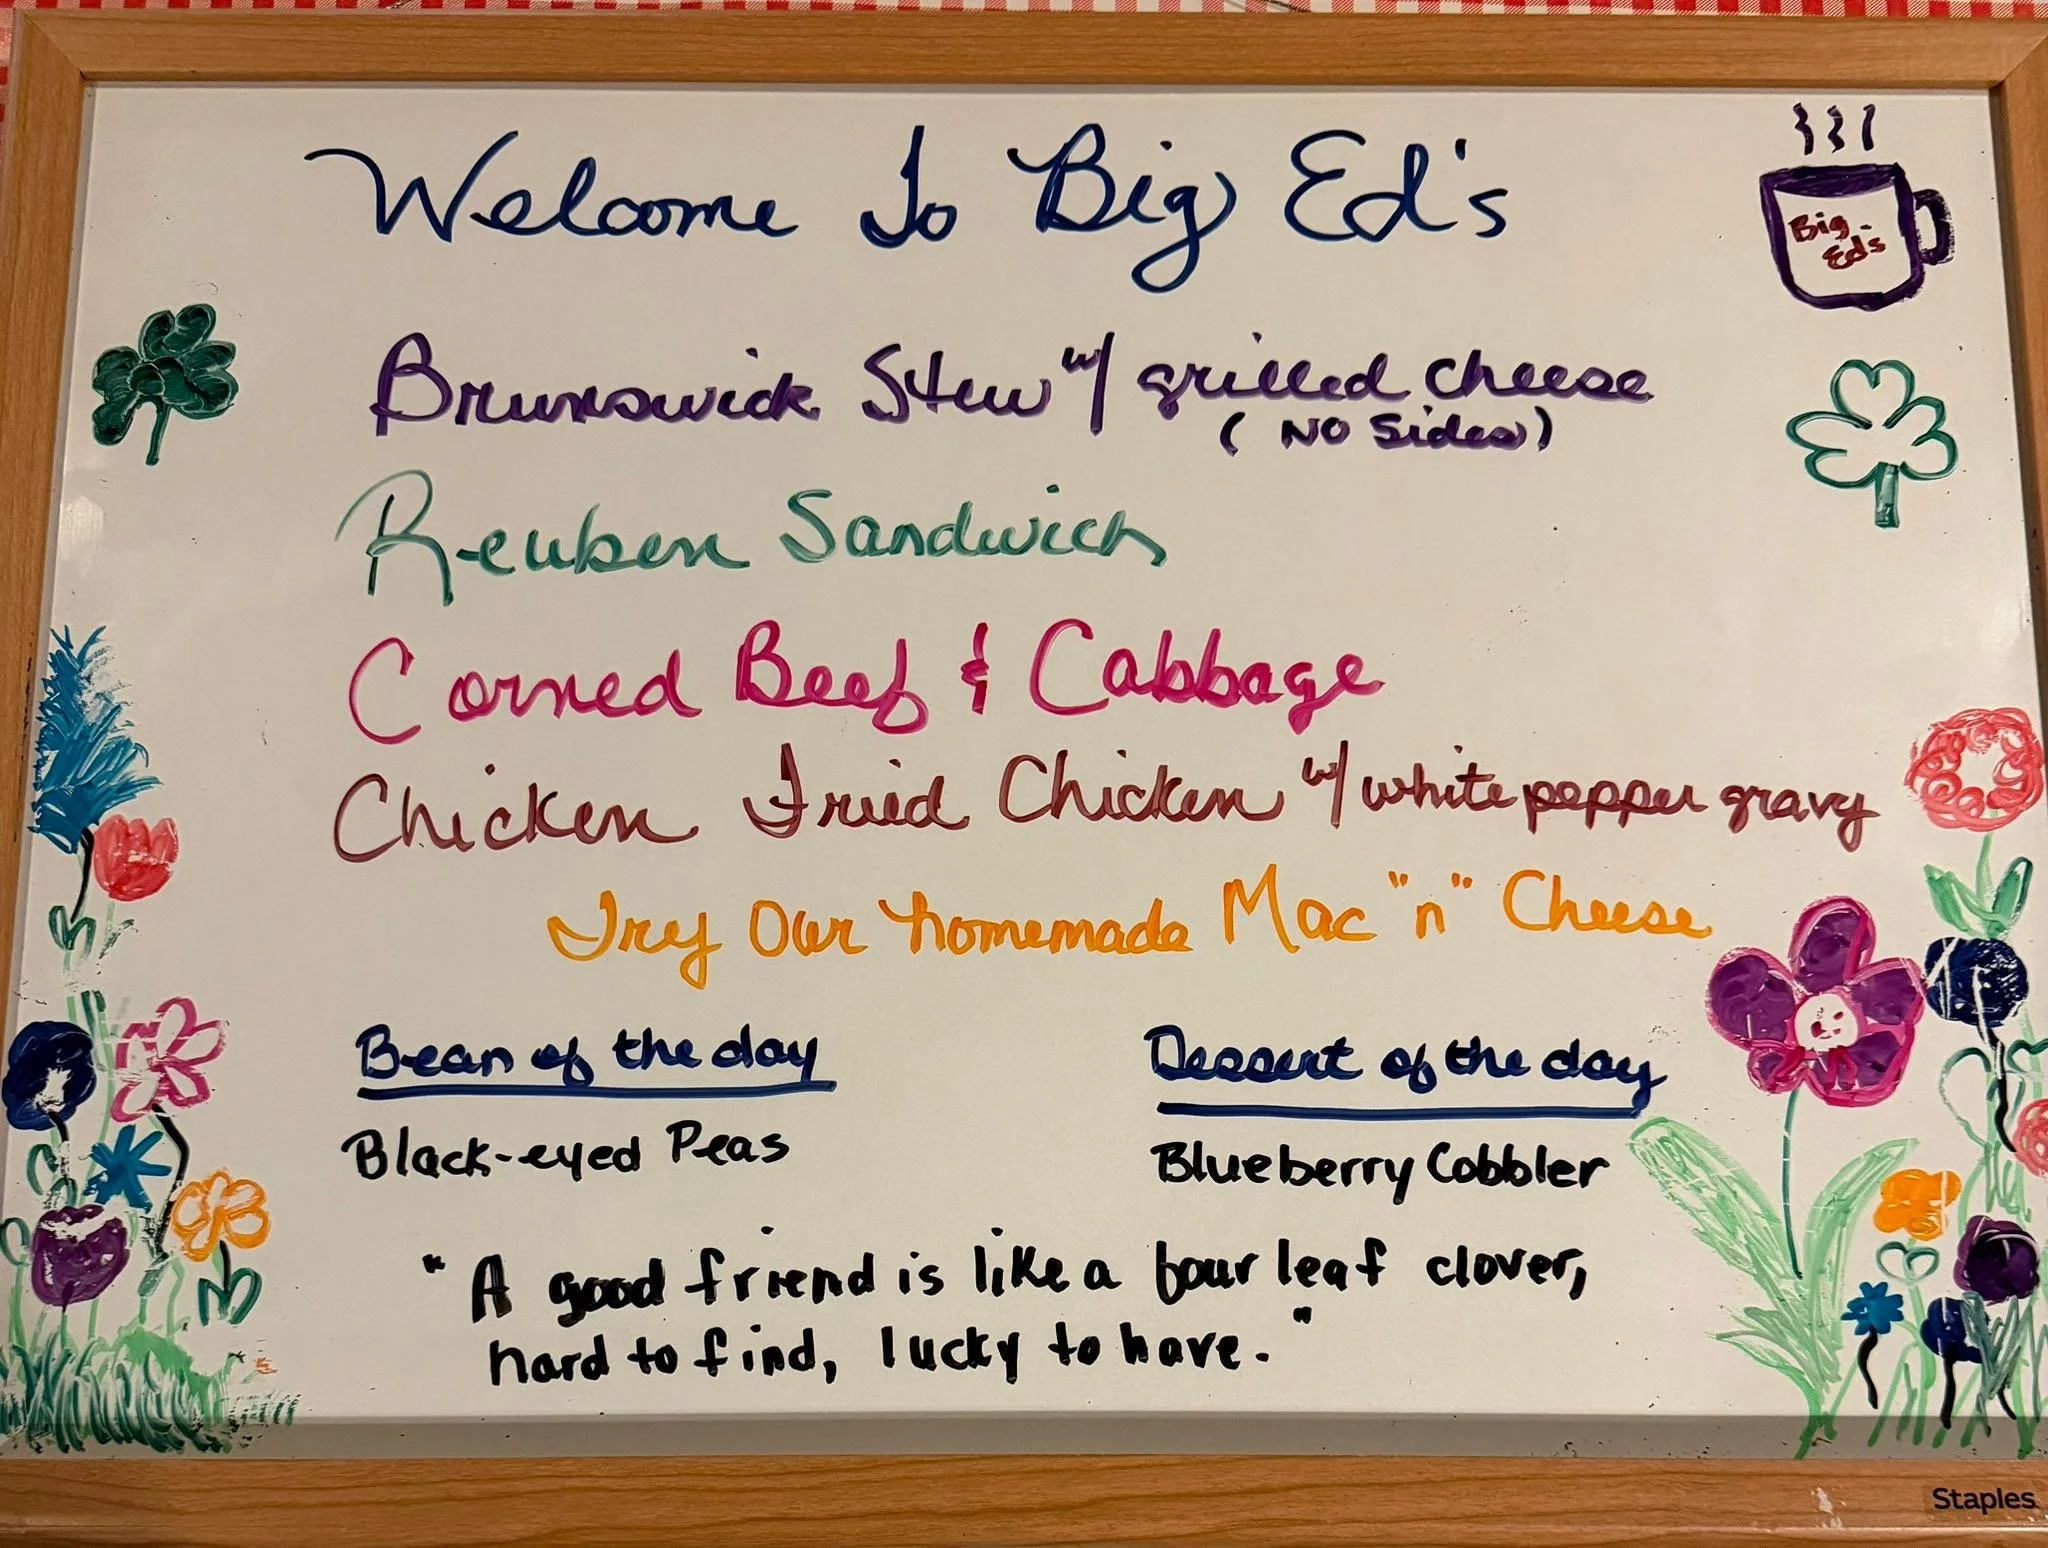 Welcome To Big Ed's
Big
Ed's
Brunswick Stew w/ grilled cheese
(NO Sides)
Reuben Sandwich
Corned Beef & Cabbage
Chicken Fried Chicken w/ white pepper gravy
Try Our homemade Mac "n" Cheese
Bean of the day
Black-eyed Peas
Dessert of the day
Blueberry Cobbler
"A good friend is like a four leaf clover,
hard to find, lucky to have."
Staples